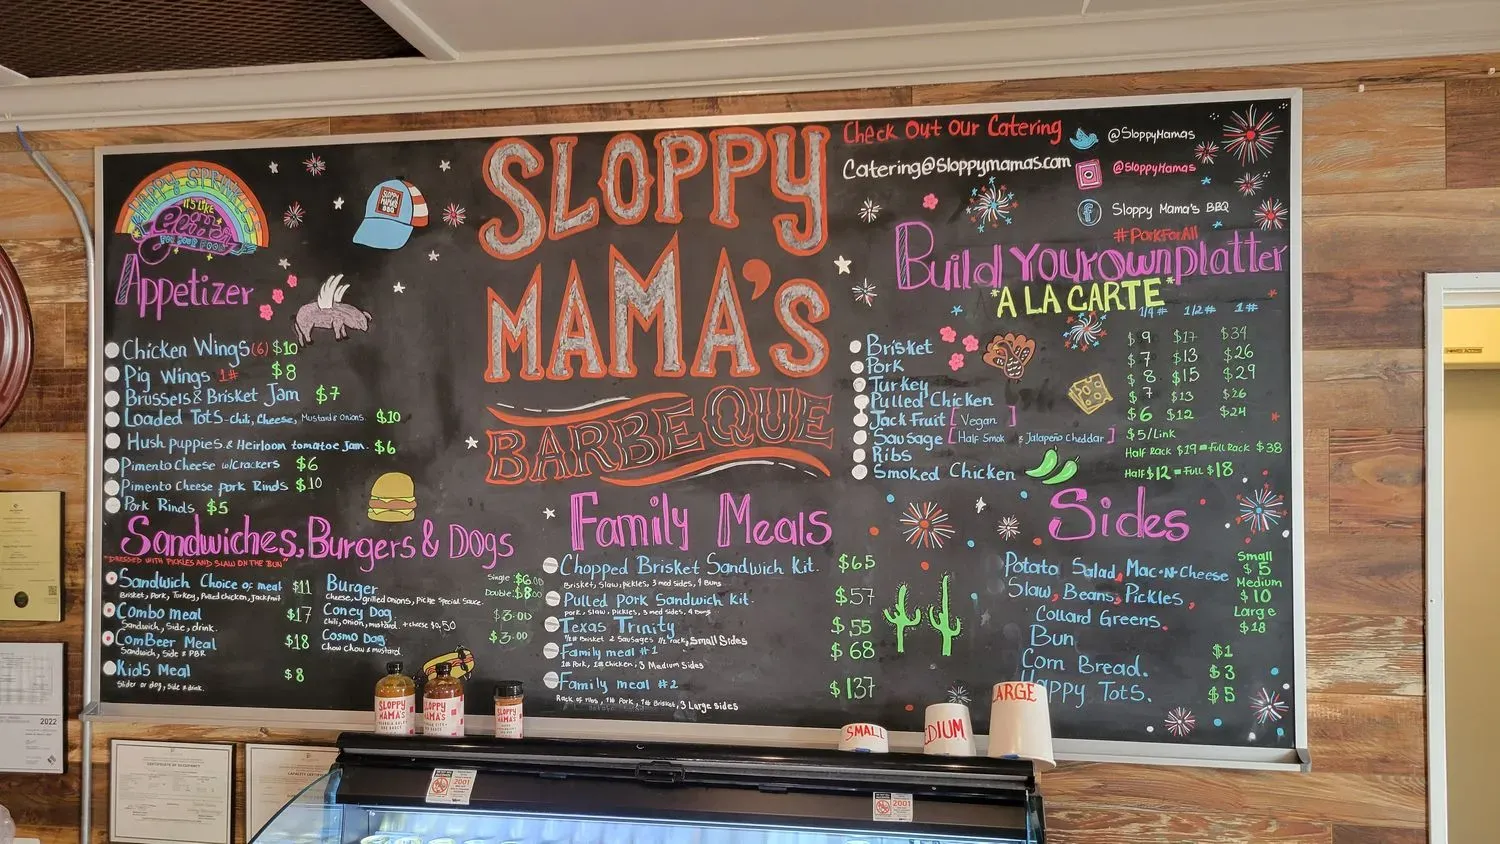 HAPPY SPRINKLES
IT'S LIKE
FOR YOUR FOOD
SLOPPY
MAMA'S
BARBEQUE
Check Out Our Catering
Catering@Sloppymamas.com
@SloppyMamas
@SloppyMamas
Sloppy Mama's BBQ
#PorkForAll
SLOPPY
MAMA'S
BBQ
Appetizer
Chicken Wings (6) $10
Pig Wings 1# $8
Brussels & Brisket Jam $7
Loaded Tots - Chili, Cheese, Mustard & Onions. $10
Hush puppies & Heirloom tomatoe Jam. $6
Pimento Cheese w/crackers $6
Pimento Cheese pork Rinds $10
Pork Rinds $5
Build Your own platter
"A LA CARTE"
1/4# 1/2# 1#
Brisket $9 $17 $34
Pork $7 $13 $26
Turkey $8 $15 $29
Pulled Chicken $7 $13 $26
Jack Fruit [Vegan] $6 $12 $24
Sausage [Half Smok & Jalapeño Cheddar] $5/Link
Ribs Half Rack $19 = Full Rack $38
Smoked Chicken Half $12 = Full $18
Sandwiches, Burgers & Dogs
"DRESSED WITH PICKLES AND SLAW ON THE BUN"
Sandwich Choice of meat $11
Brisket, Pork, Turkey, Pulled chicken, Jackfruit
Combo meal $17
Sandwich, Side, drink.
ComBeer Meal $18
Sandwich, Side & PBR
Kids Meal $8
Slider or dog, Side & drink.
Burger Single $6.00
Cheese, grilled onions, Pickle Special Sauce. Double $8.00
Coney Dog $3.00
Chili, onion, mustard + cheese $0.50
Cosmo Dog $3.00
Chow Chow & mustard.
Family Meals
Chopped Brisket Sandwich Kit. $65
Brisket, Slaw, pickles, 3 med sides, 9 Buns
Pulled Pork Sandwich Kit. $57
pork, slaw, pickles, 3 med sides, 9 Buns
Texas Trinity $55
1/2# Brisket 2 Sausages 1/2 rack, Small Sides
Family meal #1 $68
1# Pork, 1# Chicken, 3 Medium Sides
Family meal #2 $137
Rack of ribs, 1# Pork, 1# Brisket, 3 Large sides
Sides
Potato Salad, Mac-N-Cheese
Slaw, Beans, Pickles,
Collard Greens.
Small
$5
Medium
$10
Large
$18
Bun $1
Corn Bread. $3
Happy Tots. $5
SLOPPY
MAMA'S
SLOPPY
MAMA'S
SLOPPY
MAMA'S
SMALL
EDIUM
LARGE
2022
CERTIFICATE OF OCCUPANCY
2001
2001